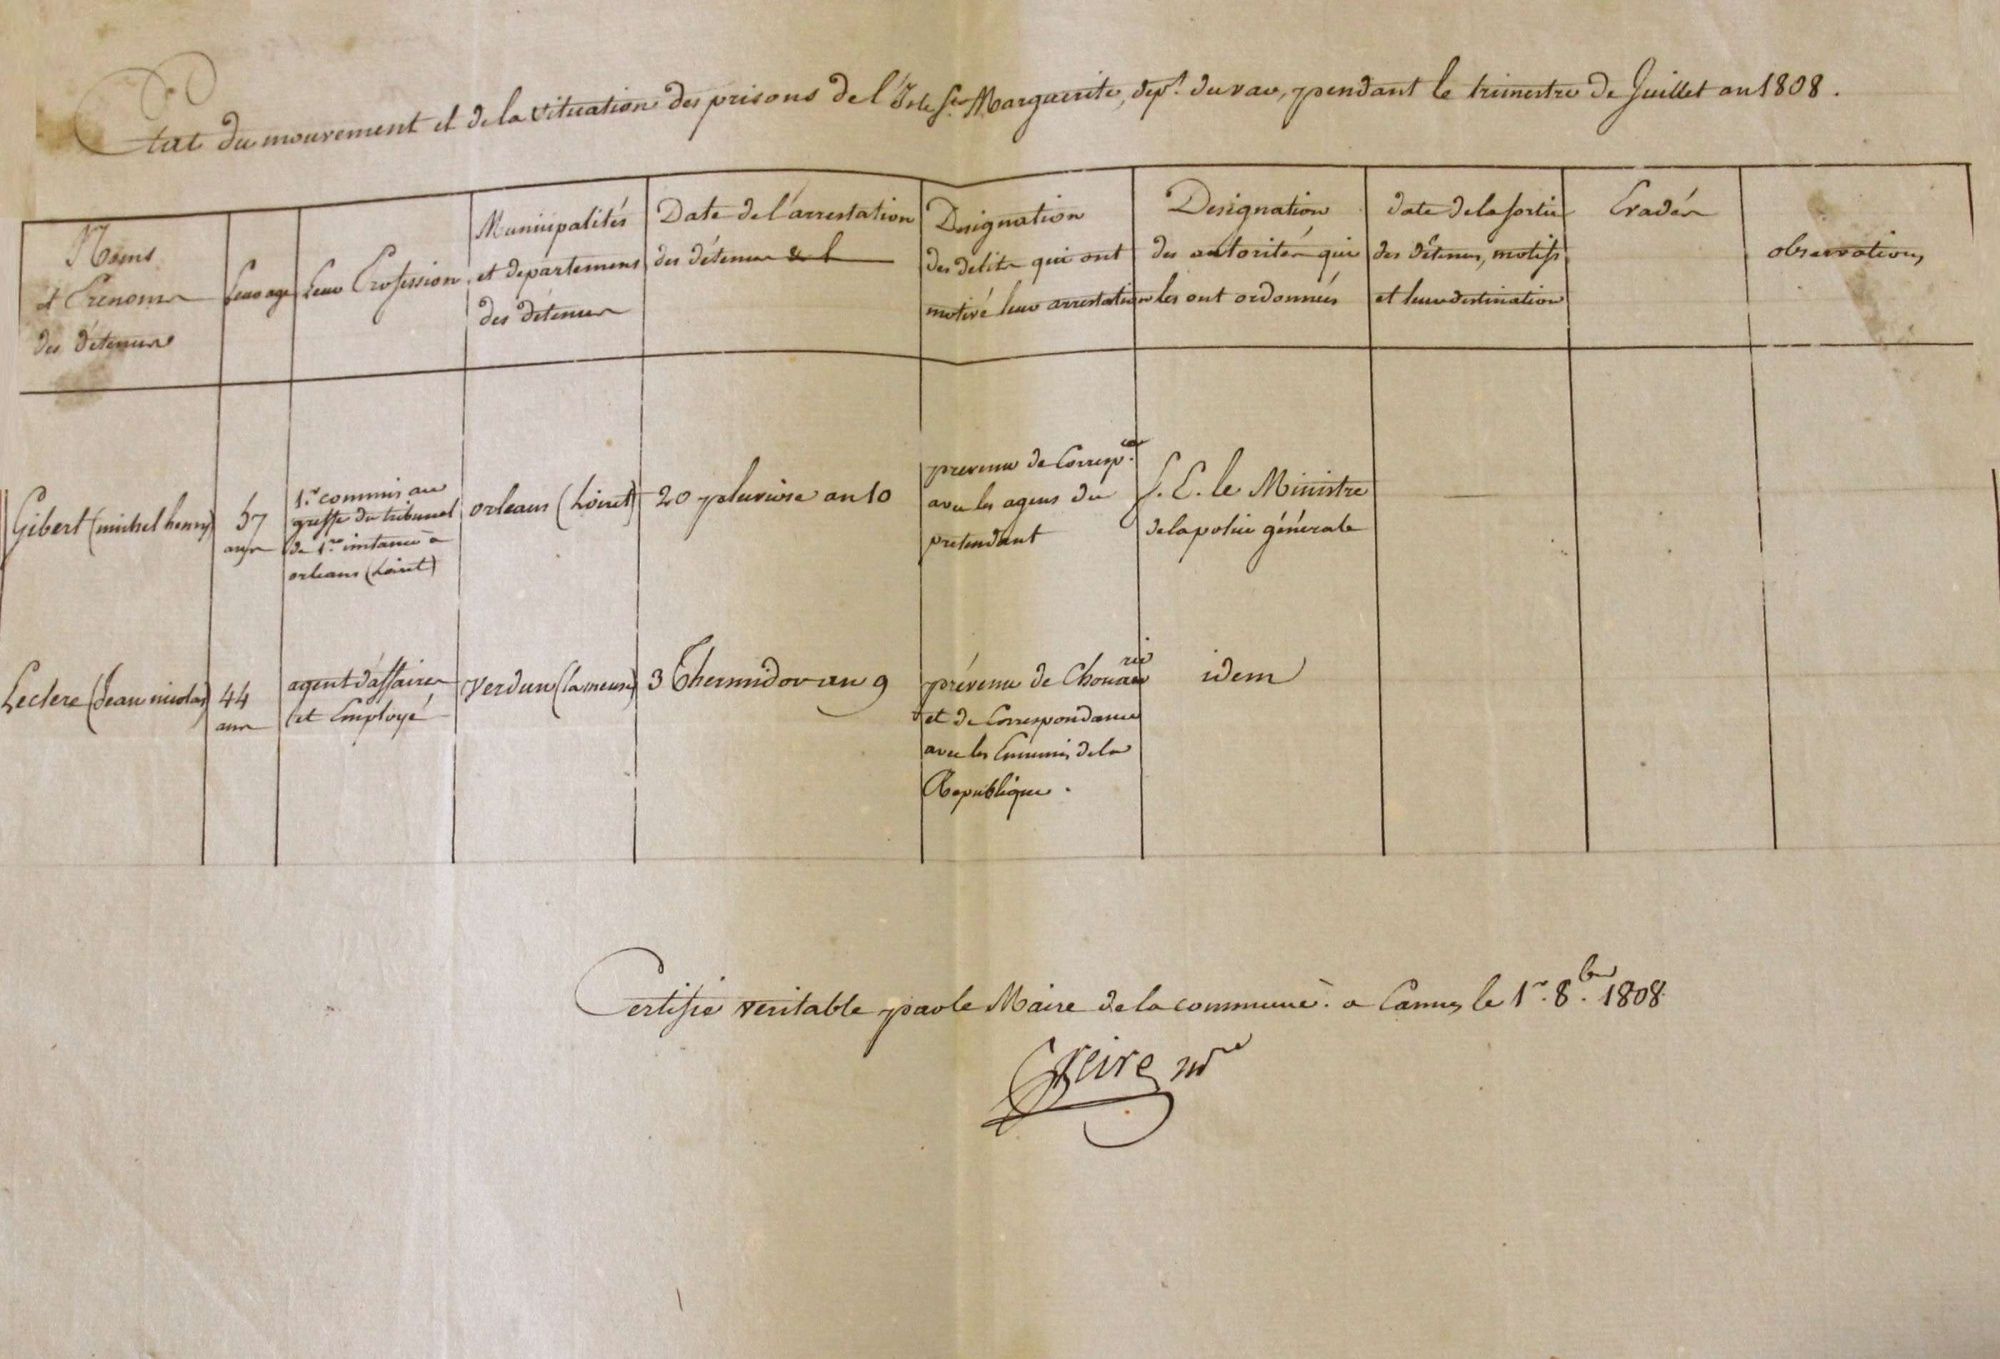 Etat du mouvement et de la situation des prisons de l'Isle Ste Marguerite, dept. du var, pendant le trimestre de Juillet an 1808.
Noms
et Prenoms
des détenus
leur age
leur Profession
Municipalités
et departemens
des détenus
Date de l'arrestation
des détenus
Designation
des delits qui ont
motivé leur arrestation
Designation
des autorités qui
les ont ordonnées
date de la sortie
des détenus, motifs
et leur destination
Evadés
observations
Gibert (michel henry)
57
ans
1er commis au
greffe du tribunal
de 1re instance à
orleans (Loiret)
orleans (Loiret)
20 pluviose an 10
prevenu de Correspce
avec les agens du
pretendant
S. E. le Ministre
de la police générale
Leclerc (Jean nicolas)
44
ans
agent d'affaires
et Employé
Verdun (la meuse)
3 Thermidor an 9
prévenu de Chouanerie
et de Correspondance
avec les Ennemis de la
République.
idem
Certifié veritable par le Maire de la commune. a Cannes le 1er. 8bre. 1808